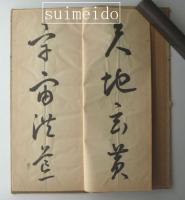 suimeido
天地玄黄
宇宙洪荒